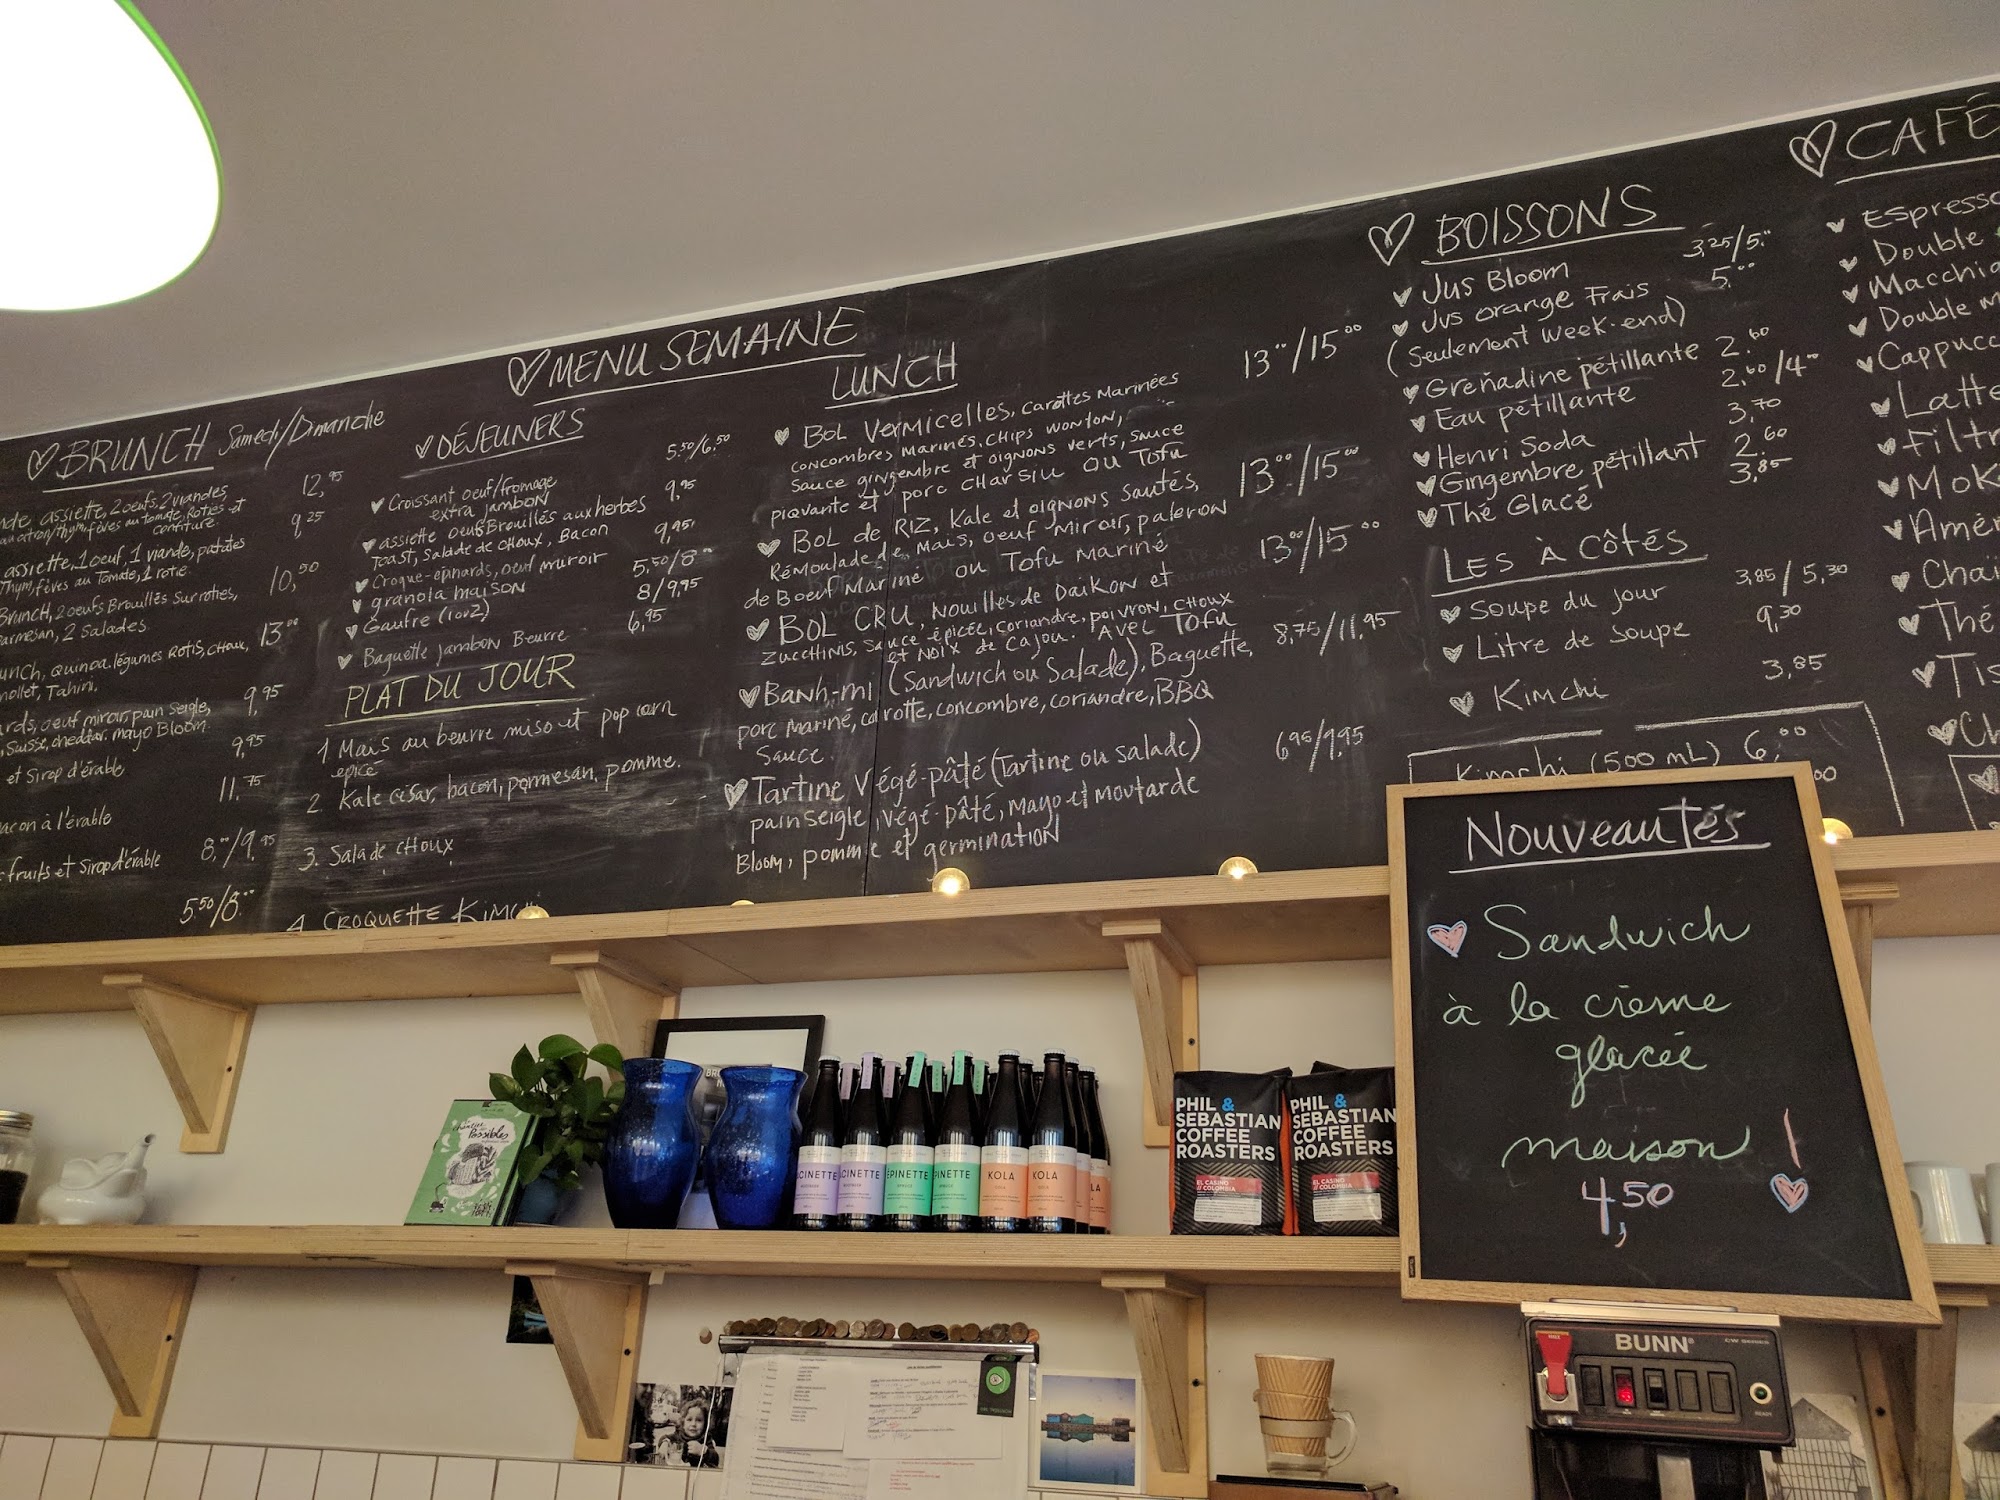 BRUNCH Samedi/Dimanche
assiette, 2 oeufs, 2 viandes 12,95
fèves au tomate, Roties et
confiture.
assiette, 1 oeuf, 1 viande, patates 9,25
Thym, fèves au Tomate, 1 rotie.
Brunch, 2 oeufs Brouillés sur roties, 10,50
Parmesan, 2 salades
quinoa, légumes Rotis, choux, 13,00
mollet, Tahini.
oeuf miroir, pain seigle, 9,95
Suisse, cheddar, mayo Bloom.
et sirop d'érable 9,95
11,75
Bacon à l'érable
fruits et sirop d'érable 8,00/9,95
5,50/8,00
MENU SEMAINE
DÉJEUNERS
Croissant oeuf/fromage 5,50/6,50
extra jambon
assiette oeufs Brouillés aux herbes 9,95
Toast, salade de choux, Bacon
Croque-épinards, oeuf miroir 9,95
granola maison 5,50/8,00
Gaufre (1 ou 2) 8/9,95
Baguette jambon Beurre 6,95
PLAT DU JOUR
1 Mais au beurre miso et pop corn
epicé
2. Kale césar, bacon, parmesan, pomme.
3. Salade choux
4. CROQUETTE KIMCHI
LUNCH
BOL Vermicelles, carottes Marinées 13,00/15,00
concombres marinés, chips wonton,
sauce gingembre et oignons verts, sauce
piquante et porc CHarSiu OU Tofu
BOL de RIZ, kale et oignons sautés, 13,00/15,00
Rémoulade de Maïs, oeuf Miroir, paleron
de Boeuf Mariné ou Tofu Mariné
BOL CRU, Nouilles de Daikon et 13,00/15,00
zucchinis, sauce épicée, coriandre, poivron, choux
et Noix de Cajou. Avec TOFU
Banh-mi (Sandwich ou Salade), Baguette, 8,75/11,95
porc Mariné, carotte, concombre, coriandre, BBQ
sauce.
Tartine Végé-pâté (Tartine ou salade) 6,95/9,95
pain seigle, végé-pâté, mayo et moutarde
Bloom, pomme et germination
BOISSONS
Jus Bloom 3,25/5,00
Jus orange Frais 5,00
(seulement week-end)
Grenadine pétillante 2,60
Eau pétillante 2,60/4,00
Henri Soda 3,70
Gingembre pétillant 2,60
Thé Glacé 3,85
LES À CÔTÉS
Soupe du jour 3,85/5,30
Litre de soupe 9,30
Kimchi 3,85
Kimchi (500 mL) 6,00
CAFÉ
Espresso
Double
Macchia
Double M
Cappucc
Latte
Filtr
Mok
Amér
Chaï
Thé
Tis
Ch
Nouveautés
Sandwich
à la crème
glacée
maison !
4,50
Possibles
CINETTE
CINETTE
ÉPINETTE
PINETTE
KOLA
KOLA
LA
PHIL &
SEBASTIAN
COFFEE
ROASTERS
EL CASINO
// COLOMBIA
PHIL &
SEBASTIAN
COFFEE
ROASTERS
EL CASINO
// COLOMBIA
BUNN
READY